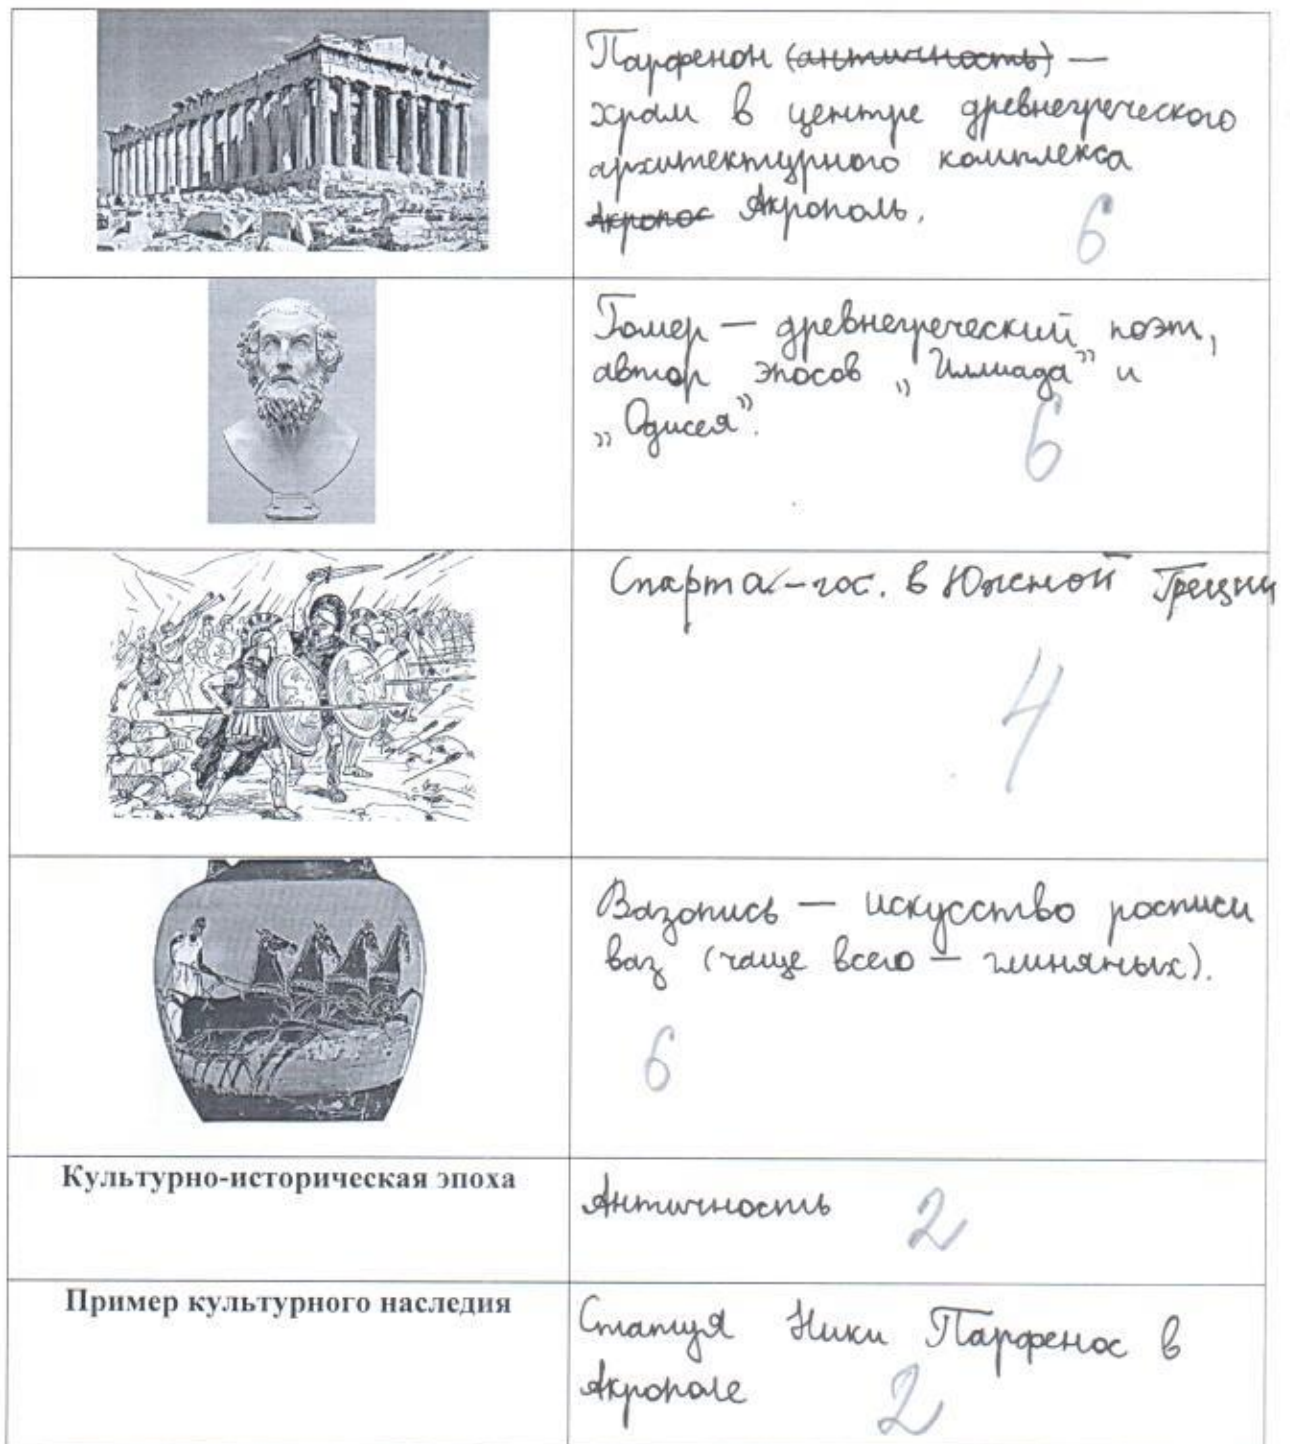 Парфенон (античность) —
храм в центре древнегреческого
архитектурного комплекса
Акропос Акрополь.
6
Гомер — древнегреческий поэт,
автор эпосов „Иллиада” и
„Одисея”.
6
Спарта – гос. в Южной Греции
4
Вазопись — искусство росписи
ваз (чаще всего — глиняных).
6
Культурно-историческая эпоха
Античность 2
Пример культурного наследия
Статуя Ники Парфенос в
Акрополе 2